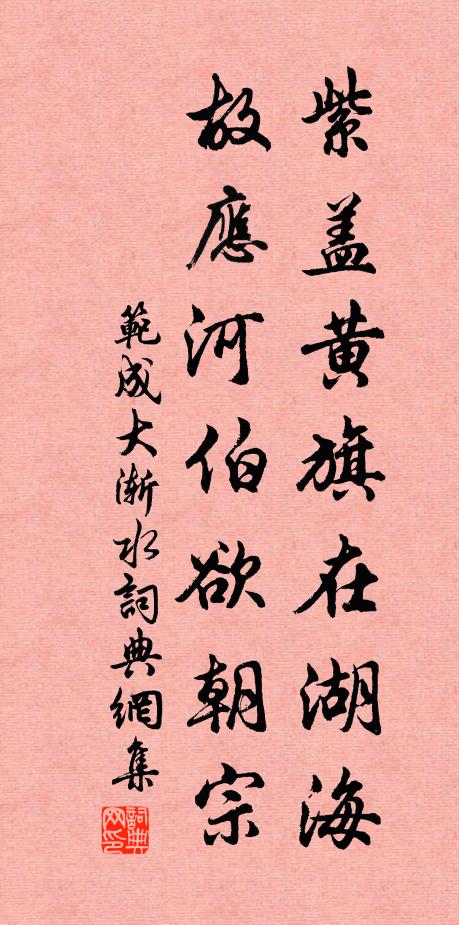 紫盖黄旗在湖海
故應河伯欲朝宗
範成大澵水詞典網集
詞典网印